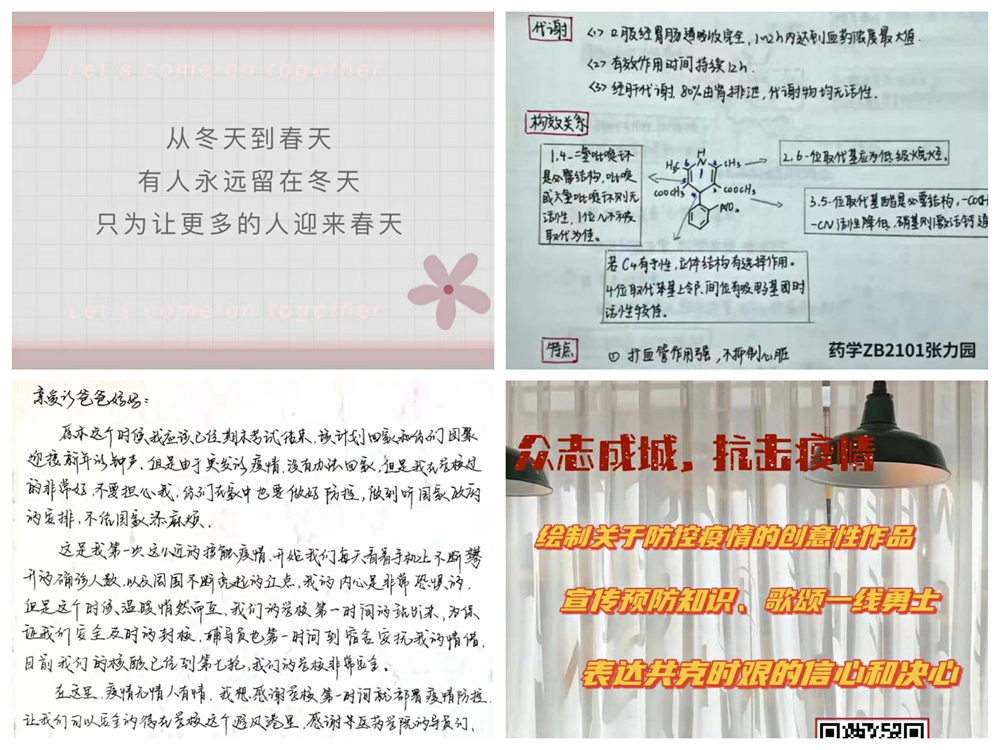 Let's come on together
从冬天到春天
有人永远留在冬天
只为让更多的人迎来春天
Let's come on together
代谢
<1> 口服经胃肠道吸收完全,1~2h内达到血药浓度最大值.
<2> 有效作用时间持续12h.
<3> 经肝代谢.80%由肾排泄,代谢物均无活性.
构效关系
1.4-二氢吡啶环
是必需结构,吡啶
或六氢吡啶环则无
活性,1位N不被
取代为佳。
H
N
H₃C
CH₃
COOCH₃
COOCH₃
NO₂
2.6-位取代基应为低级烷烃。
3.5-位取代基酯是必需结构,-COCH
-CN活性降低,硝基则激活钙通
若C4有手性,立体结构有选择作用。
4位取代苯基上邻、间位有吸电子基团时
活性较佳。
特点
① 扩血管作用强,不抑制心脏
药学ZB2101张力园
亲爱的爸爸妈妈:
原本这个时候我应该已经期末考试结束,该计划回家和你们团聚
迎接新年的钟声,但是由于突发的疫情,没有办法回家,但是我在学校过
的非常好,不要担心我,你们在家中也要做好防控,做到听国家政府
的安排,不给国家添麻烦。
这是我第一次这么近的接触疫情,开始我们每天看着手机上不断攀
升的确诊人数,以及周围不断亮起的红点,我的内心是非常恐惧的,
但是这个时候,温暖悄然而至,我们的学校第一时间的站出来,为保
证我们安全及时的封校,辅导员也第一时间到宿舍安抚我的情绪,
目前我们的核酸已经到第七轮,我们的学校非常安全。
在这里,疫情无情人有情,我想感谢学校第一时间就部署疫情防控,
让我们可以安全的待在学校这个避风港里,感谢华医药学院的导员们,
众志成城,抗击疫情
绘制关于防控疫情的创意性作品
宣传预防知识、歌颂一线勇士
表达共克时艰的信心和决心